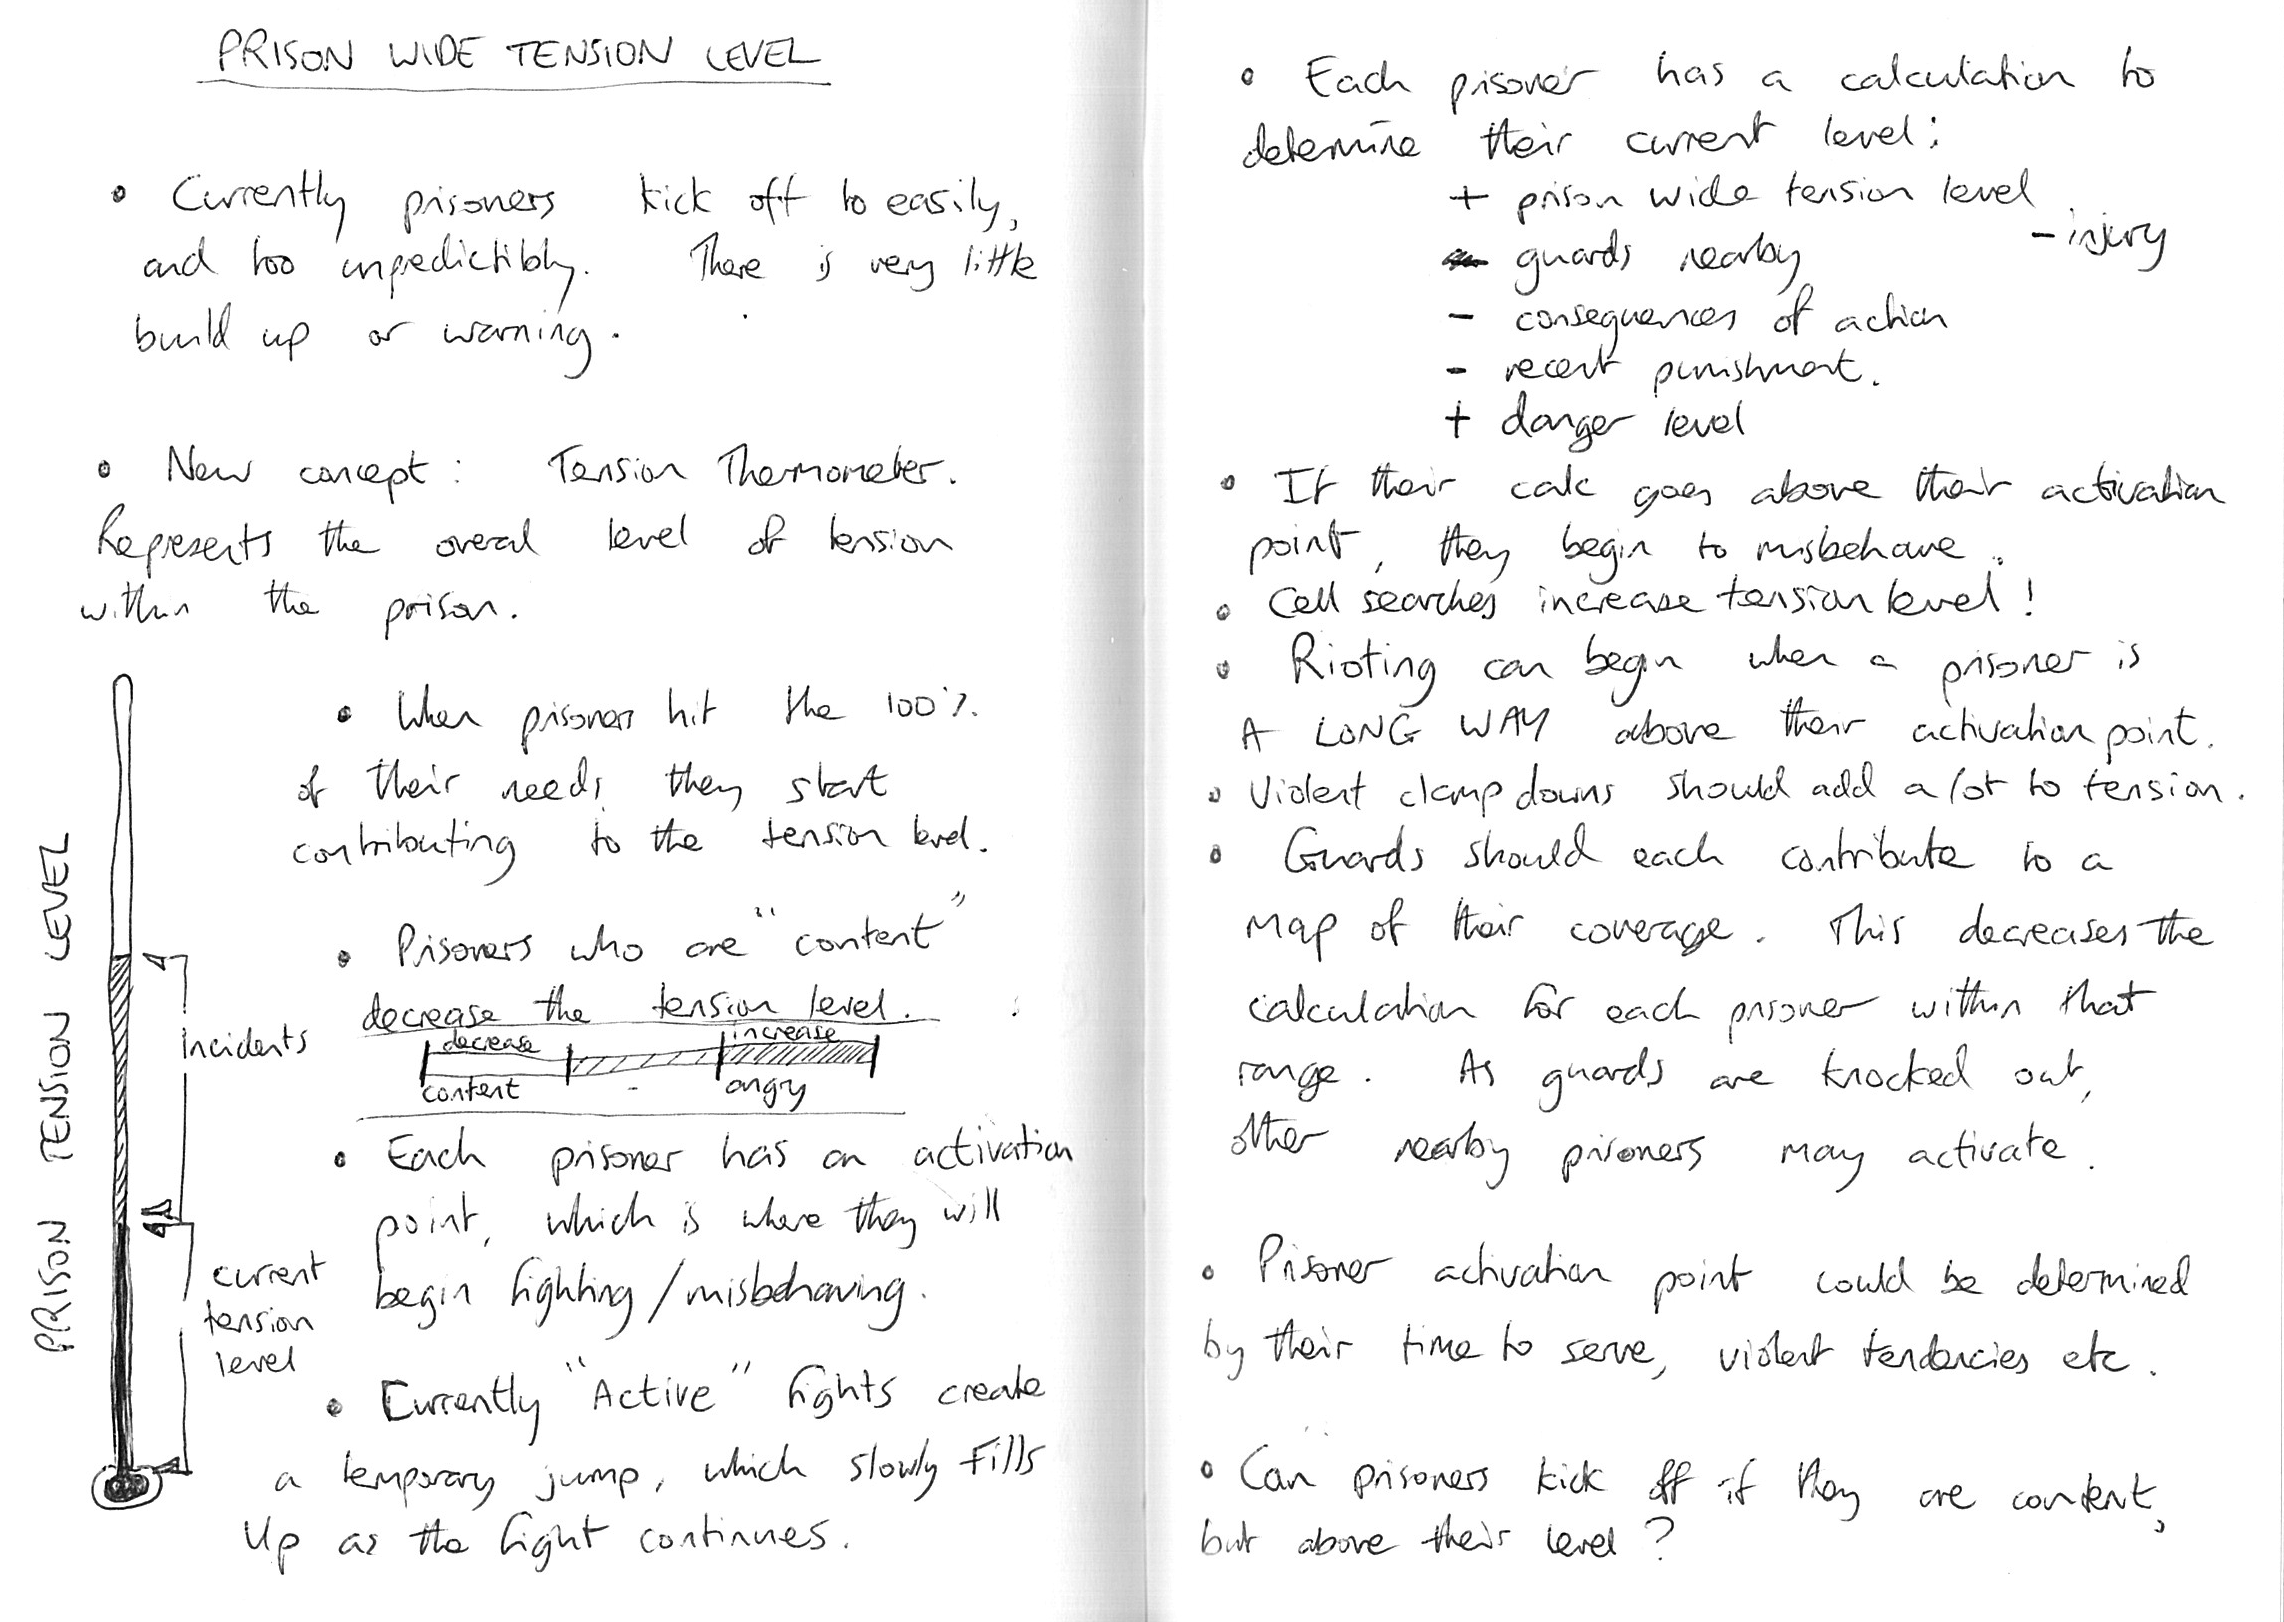 PRISON WIDE TENSION LEVEL
• Currently prisoners kick off to easily,
and too unpedictibly. There is very little
build up or warning.
• New concept: Tension Thermometer.
Represents the overal level of tension
within the prison.
• When prisoners hit the 100%
of their needs, they start
contributing to the tension level.
• Prisoners who are "content"
decrease the tension level.
decrease increase
content angry
• Each prisoner has an activation
point, which is where they will
begin fighting/misbehaving.
• Currently "Active" fights create
a temporary jump, which slowly fills
up as the fight continues.
PRISON TENSION LEVEL
incidents
current
tension
level
• Each prisoner has a calculation to
determine their current level:
+ prison wide tension level
- injury
- guards nearby
- consequences of action
- recent punishment.
+ danger level
• If their calc goes above their activation
point, they begin to misbehave.
• Cell searches increase tension level!
• Rioting can begin when a prisoner is
A LONG WAY above their activation point.
• Violent clamp downs should add a lot to tension.
• Guards should each contribute to a
map of their coverage. This decreases the
calculation for each prisoner within that
range. As guards are knocked out,
other nearby prisoners may activate.
• Prisoner activation point could be determined
by their time to serve, violent tendencies etc.
• Can prisoners kick off if they are content,
but above their level?